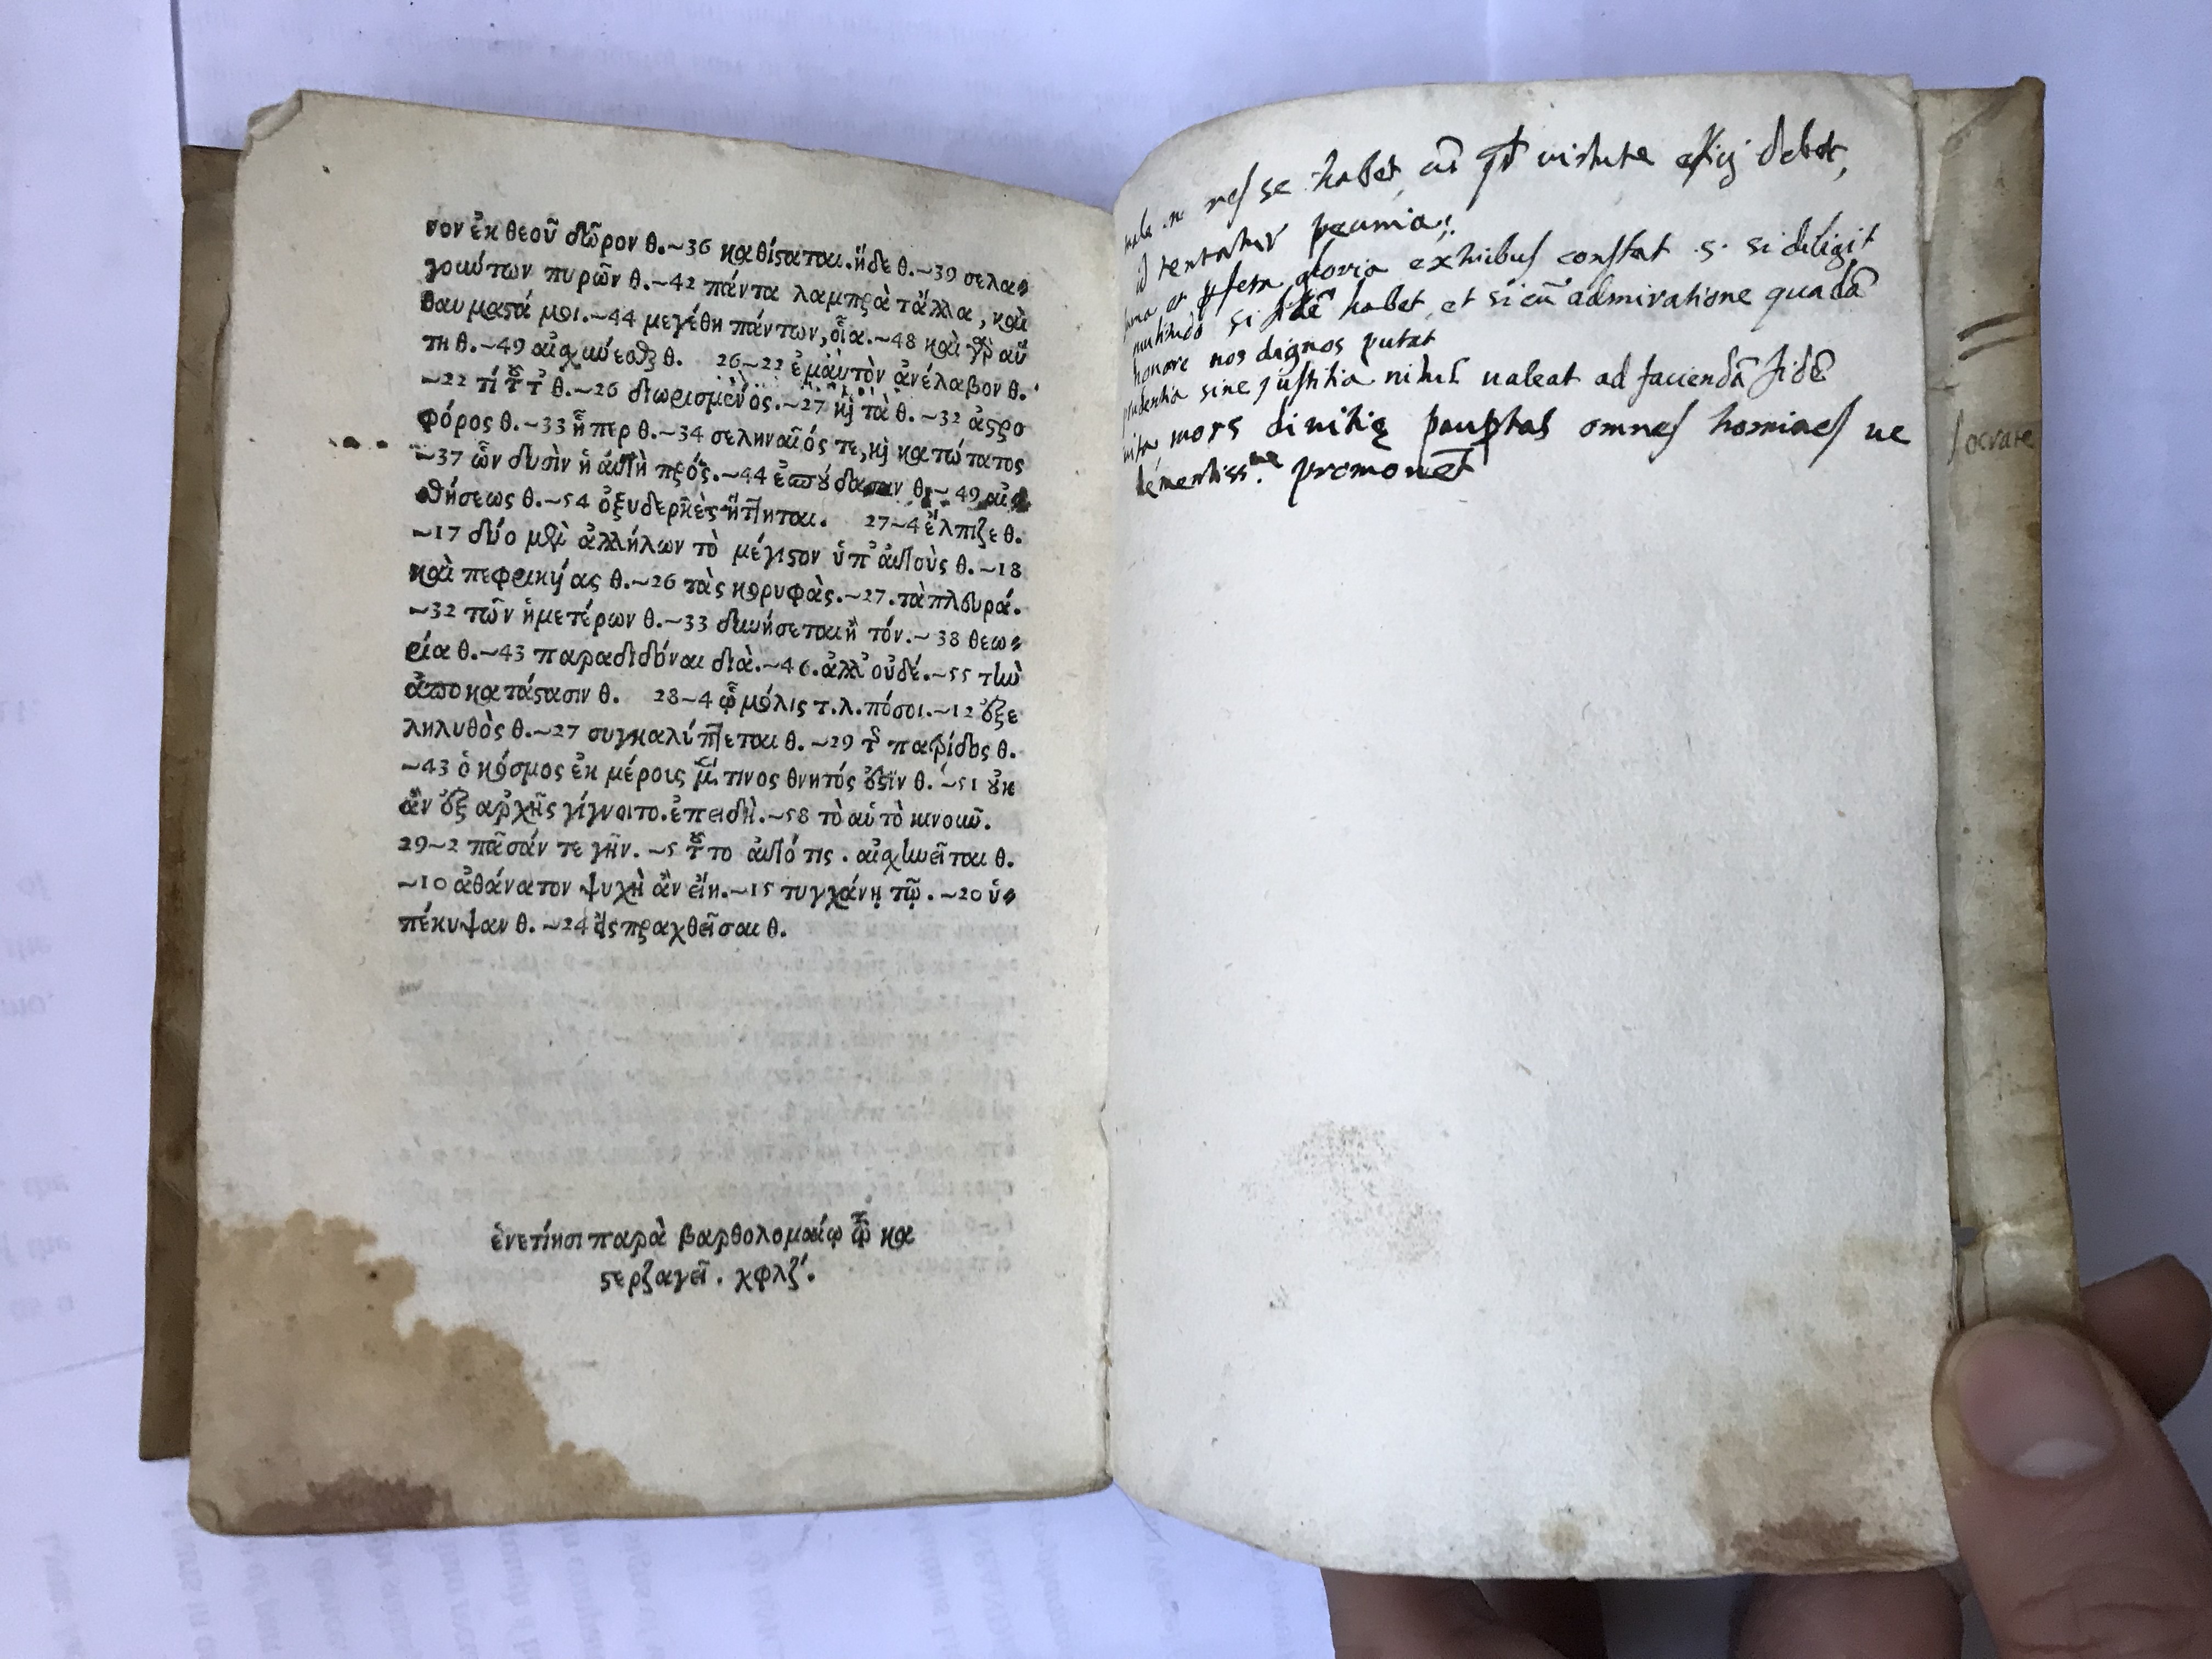 νον ἐκ θεοῦ δῶρον θ.~36 καθίσαται. ἥδε θ.~39 σελα⸗
γούντων πυρῶν θ.~42 πάντα λαμπρὰ τἄλλα, καὶ
θαυμαϛά μοι.~44 μεγέθη πάντων, οἷα.~48 καὶ γὰρ αὕ
τη θ.~49 αἰσχύεσθε θ. 26~22 ἐμαυτὸν ἀνέλαβον θ.
~22 τί θ.~26 διωρισμένος.~27 καὶ τὰ θ.~32 ἀϛρο
φόρος θ.~33 ἥπερ θ.~34 σεληναῖός τε, καὶ κατώτατος
~37 ὧν δυσὶν ἡ αὐτὴ πρός.~44 ἐσπούδασαν θ.~49 αἰσ
θήσεως θ.~54 ὀξυδερκὲς ἥττηται. 27~4 ἔλπιζε θ.
~17 δύο μετὰ ἀλλήλων τὸ μέγιϛον ὑπ' αὐτοὺς θ.~18
καὶ πεφρικυίας θ.~26 τὰς κορυφὰς.~27. τὰ πλευρά.
~32 τῶν ἡμετέρων θ.~33 δυνήσεται ἢ τόν.~38 θεω⸗
ρία θ.~43 παραδιδόναι διὰ.~46. ἀλλ' οὐδέ.~55 τὴν
ἀποκατάϛασιν θ. 28~4 ᾧ μόλις τ.λ. πόσοι.~12 ἐξε
ληλυθὸς θ.~27 συγκαλύπτεται θ.~29 τῆς πατρίδος θ.
~43 ὁ κόσμος ἐκ μέρους τινος θνητός ἐϛιν θ.~51 οὐκ
ἂν ἐξ ἀρχῆς γίγνοιτο. ἐπειδὴ.~58 τὸ αὑτὸ κινοῦν.
29~2 πᾶσάν τε γῆν.~5 τοῦτο αὐτό τις. αἰσχυνεῖται θ.
~10 ἀθάνατον ψυχὴ ἂν εἴη.~15 τυγχάνῃ τῷ.~20 ὑ⸗
πέκυψαν θ.~24 εἰσπραχθεῖσαι θ.
ἐνετίησι παρὰ βαρθολομαίῳ τῷ κα
ϛερζαγεῖ. χφλζ´.
res se habet, cū qd virtute effici debet,
id tentatur pecunia:
gloria ex tribus constat .s. si diligit
multitudo si fidē habet, et si cū admiratione quadā
honore nos dignos putat
prudentia sine justitia nihil ualeat ad faciendā fidē
uita mors diuitię paupertas omnes homines ue
hementiss.me promouēt
Socrate